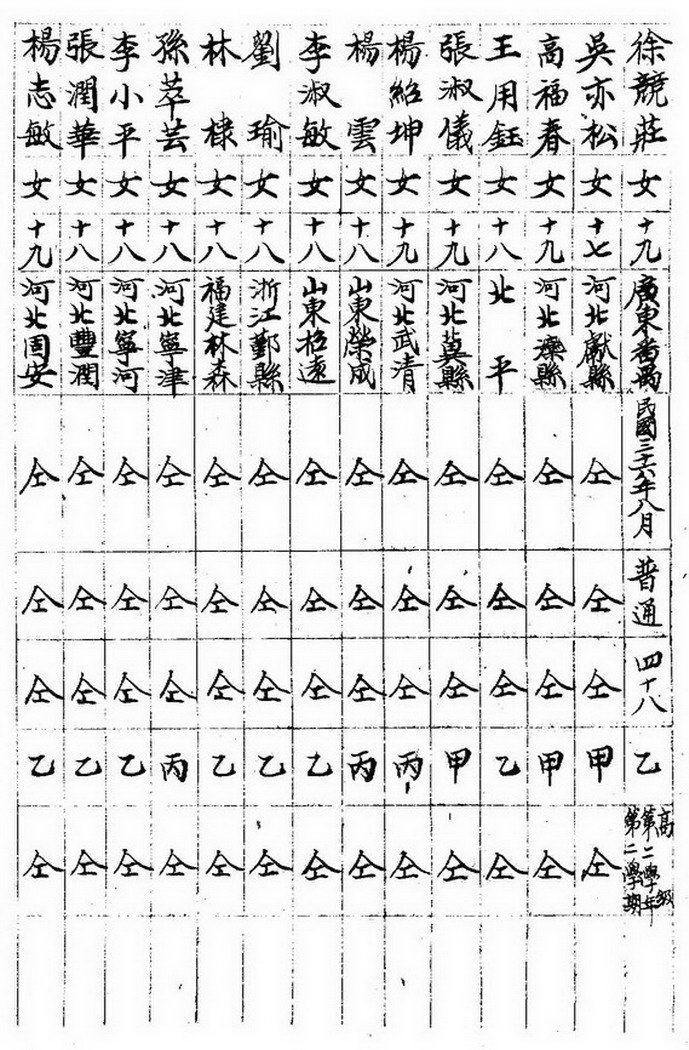 徐競莊 女 十九 廣東番禺 民國三十六年八月 普通 四十八 乙 高級第二學年第二學期
吳亦松 女 十七 河北獻縣 仝 仝 仝 甲 仝
高福春 女 十九 河北灤縣 仝 仝 仝 甲 仝
王用鈺 女 十八 北平 仝 仝 仝 乙 仝
張淑儀 女 十九 河北冀縣 仝 仝 仝 甲 仝
楊紹坤 女 十九 河北武清 仝 仝 仝 丙 仝
楊雲 女 十八 山東榮成 仝 仝 仝 丙 仝
李淑敏 女 十八 山東招遠 仝 仝 仝 乙 仝
劉瑜 女 十八 浙江鄞縣 仝 仝 仝 乙 仝
林棣 女 十八 福建林森 仝 仝 仝 乙 仝
孫萃芸 女 十八 河北寧津 仝 仝 仝 丙 仝
李小平 女 十八 河北寧河 仝 仝 仝 乙 仝
張潤華 女 十八 河北豐潤 仝 仝 仝 乙 仝
楊志敏 女 十九 河北固安 仝 仝 仝 乙 仝